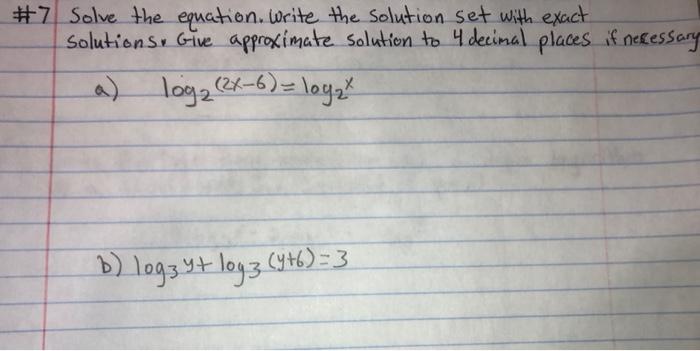 #7 Solve the equation. Write the solution set with exact
solutions. Give approximate solution to 4 decimal places if necessary
a) log₂(2x-6)=log₂x
b) log₃y+log₃(y+6)=3